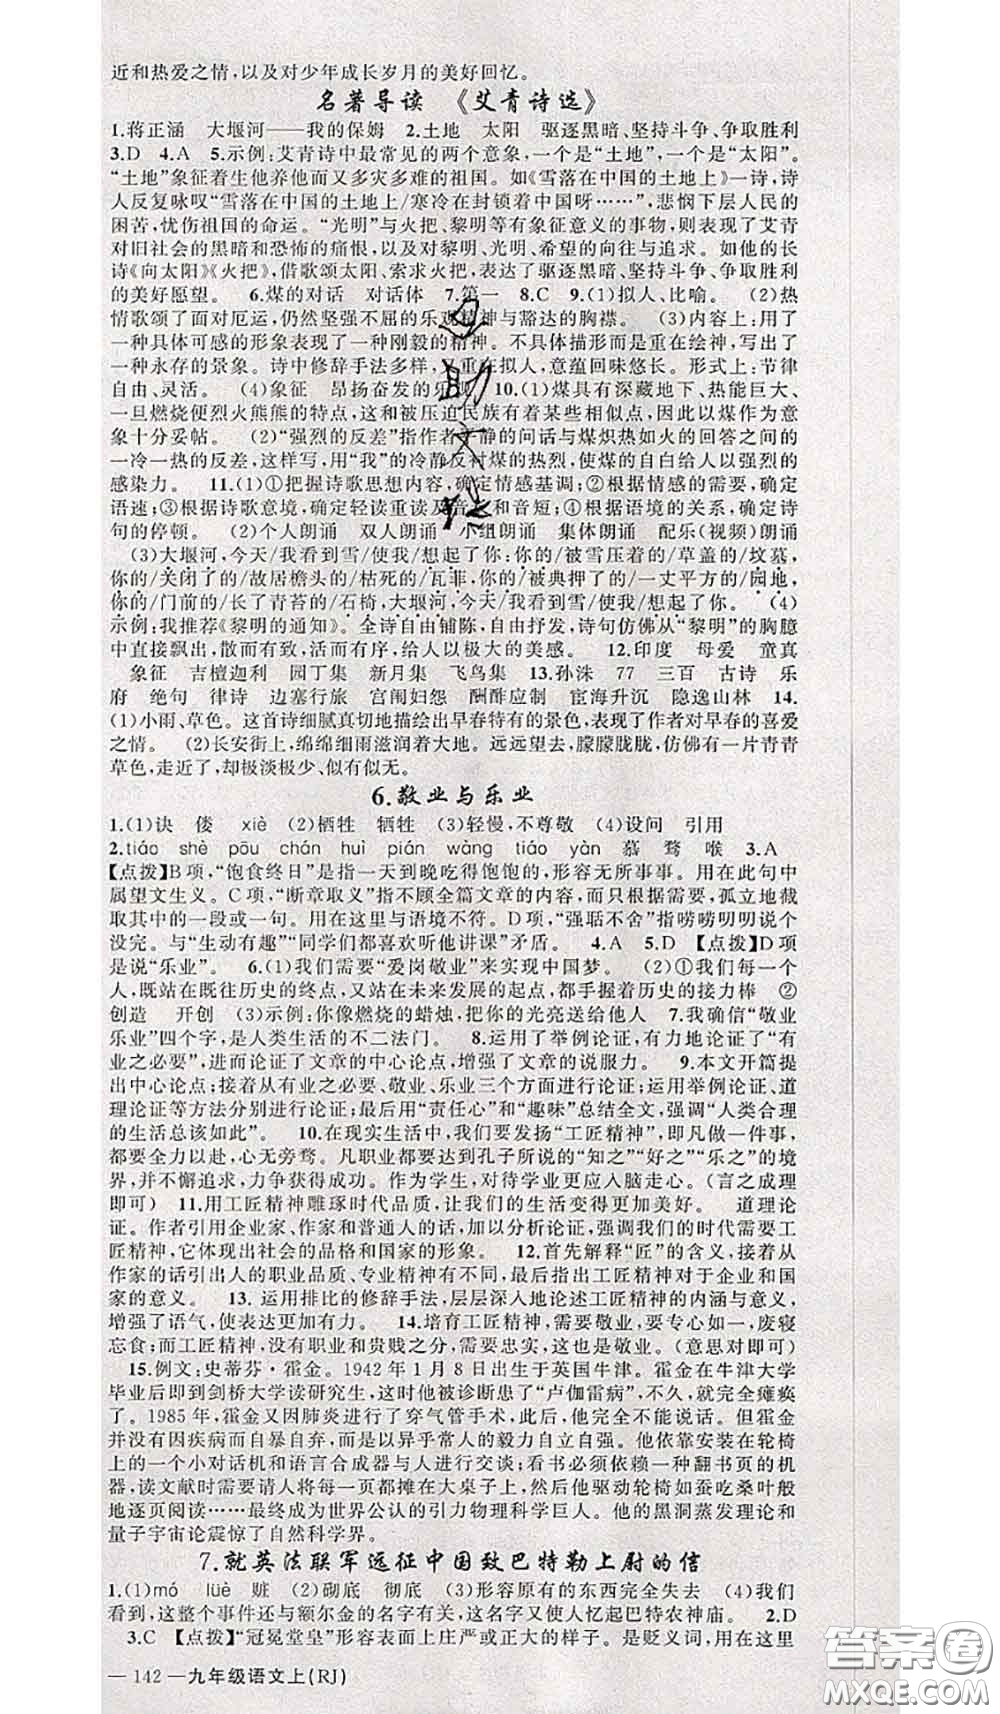 近和热爱之情,以及对少年成长岁月的美好回忆。
名著导读 《艾青诗选》
1.蒋正涵 大堰河——我的保姆 2.土地 太阳 驱逐黑暗、坚持斗争、争取胜利
3.D 4.A 5.示例:艾青诗中最常见的两个意象,一个是“土地”,一个是“太阳”。
“土地”象征着生他养他而又多灾多难的祖国。如《雪落在中国的土地上》一诗,诗
人反复咏叹“雪落在中国的土地上/寒冷在封锁着中国呀……”,悲悯下层人民的
困苦,忧伤祖国的命运。“光明”与火把、黎明等有象征意义的事物,则表现了艾青
对旧社会的黑暗和恐怖的痛恨,以及对黎明、光明、希望的向往与追求。如他的长
诗《向太阳》《火把》,借歌颂太阳、索求火把,表达了驱逐黑暗、坚持斗争、争取胜利
的美好愿望。 6.煤的对话 对话体 7.第一 8.C 9.(1)拟人、比喻。 (2)热
情歌颂了面对厄运,仍然坚强不屈的乐观精神与豁达的胸襟。 (3)内容上:用了
一种具体可感的形象表现了一种刚毅的精神。不具体描形而是重在绘神,写出了
一种永存的景象。诗中修辞手法多样,又重在拟人,意蕴回味悠长。形式上:节律
自由、灵活。 (4)象征 昂扬奋发的乐观 10.(1)煤具有深藏地下、热能巨大、
一旦燃烧便烈火熊熊的特点,这和被压迫民族有着某些相似点,因此以煤作为意
象十分妥帖。 (2)“强烈的反差”指作者平静的问话与煤炽热如火的回答之间的
一冷一热的反差,这样写,用“我”的冷静反衬煤的热烈,使煤的自白给人以强烈的
感染力。 11.(1)①把握诗歌思想内容,确定情感基调;②根据情感的需要,确定
语速;③根据诗歌意境,确定轻读重读及音长和音短;④根据语境的关系,确定诗
句的停顿。 (2)个人朗诵 双人朗诵 小组朗诵 集体朗诵 配乐(视频)朗诵
(3)大堰河,今天/我看到雪/使我/想起了你:你的/被雪压着的/草盖的/坟墓,
你的/关闭了的/故居檐头的/枯死的/瓦菲,你的/被典押了的/一丈平方的/园地,
你的/门前的/长了青苔的/石椅,大堰河,今天/我看到雪/使我/想起了你。 (4)
示例:我推荐《黎明的通知》。全诗自由铺陈,自由抒发,诗句仿佛从“黎明”的胸臆
中直接飘出,散而有致,活而有序,给人以极大的美感。 12.印度 母爱 童真
象征 吉檀迦利 园丁集 新月集 飞鸟集 13.孙洙 77 三百 古诗 乐
府 绝句 律诗 边塞行旅 宫闱妇怨 酬酢应制 宦海升沉 隐逸山林 14.
(1)小雨、草色。这首诗细腻真切地描绘出早春特有的景色,表现了作者对早春的喜爱
之情。 (2)长安街上,绵绵细雨滋润着大地。远远望去,朦朦胧胧,仿佛有一片青青
草色,走近了,却极淡极少、似有似无。
6.敬业与乐业
1.(1)诀 偻 xiè (2)栖牲 牺牲 (3)轻慢,不尊敬 (4)设问 引用
2.tiáo shè pōu chán huì pián wàng tiáo yàn 慕 骛 喉 3.A
【点拨】B项,“饱食终日”是指一天到晚吃得饱饱的,形容无所事事。用在此句中
属望文生义。C项,“断章取义”指不顾全篇文章的内容,而只根据需要,孤立地截
取其中的一段或一句。用在这里与语境不符。D项,“强聒不舍”指唠唠叨叨说个
没完。与“生动有趣”“同学们都喜欢听他讲课”矛盾。 4.A 5.D 【点拨】D项
是说“乐业”。 6.(1)我们需要“爱岗敬业”来实现中国梦。 (2)①我们每一个
人,既站在既往历史的终点,又站在未来发展的起点,都手握着历史的接力棒 ②
创造 开创 (3)示例:你像燃烧的蜡烛,把你的光亮送给他人 7.我确信“敬业
乐业”四个字,是人类生活的不二法门。 8.运用了举例论证,有力地论证了“有
业之必要”,进而论证了文章的中心论点,增强了文章的说服力。 9.本文开篇提
出中心论点;接着从有业之必要、敬业、乐业三个方面进行论证;运用举例论证、道
理论证等方法分别进行论证;最后用“责任心”和“趣味”总结全文,强调“人类合理
的生活总该如此”。 10.在现实生活中,我们要发扬“工匠精神”,即凡做一件事,
都要全力以赴,心无旁骛。凡职业都要达到孔子所说的“知之”“好之”“乐之”的境
界,并不懈追求,力争获得成功。作为学生,对待学业更应入脑走心。(言之成理
即可) 11.用工匠精神雕琢时代品质,让我们的生活变得更加美好。 道理论
证。作者引用企业家、作家和普通人的话,加以分析论证,强调我们的时代需要工
匠精神,它体现出社会的品格和国家的形象。 12.首先解释“匠”的含义,接着从
作家的话引出人的职业品质、专业精神有不同,最后指出工匠精神对于企业和国
家的意义。 13.运用排比的修辞手法,层层深入地论述工匠精神的内涵与意义,
增强了语气,使表达更加有力。 14.培育工匠精神,需要敬业,要专心如一,废寝
忘食;而工匠精神,没有职业和贵贱之分,更多的是执着,也是敬业。(意思对即可)
15.例文:史蒂芬·霍金。1942年1月8日出生于英国牛津。霍金在牛津大学
毕业后即到剑桥大学读研究生,这时他被诊断患了“卢伽雷病”,不久,就完全瘫痪
了。1985年,霍金又因肺炎进行了穿气管手术,此后,他完全不能说话。但霍金
并没有因疾病而自暴自弃,而是以异乎常人的毅力自立自强。他依靠安装在轮椅
上的一个小对话机和语言合成器与人进行交谈;看书必须依赖一种翻书页的机
器,读文献时需要请人将每一页都摊在大桌子上,然后他驱动轮椅如蚕吃桑叶般
地逐页阅读……最终成为世界公认的引力物理科学巨人。他的黑洞蒸发理论和
量子宇宙论震惊了自然科学界。
7.就英法联军远征中国致巴特勒上尉的信
1.(1)mó lüè 赃 (2)砌底 彻底 (3)形容原有的东西完全失去 (4)我们
看到,这整个事件还与额尔金的名字有关,这名字又使人忆起巴特农神庙。 2.D
3.C 【点拨】“冠冕堂皇”形容表面上庄严或正大的样子。是贬义词,用在这里
— 142 —九年级语文上(RJ)
答案圈
MXQE.COM